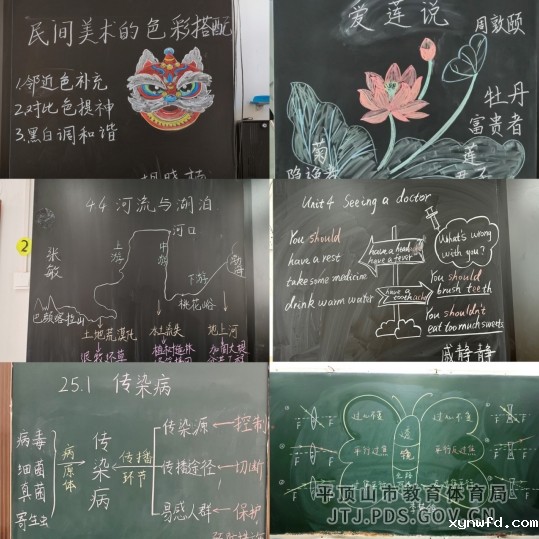 民间美术的色彩搭配
1.邻近色补充
2.对比色提神
3.黑白调和谐
爱莲说
周敦颐
牡丹
富贵者
菊
隐逸者
莲
4.4 河流与湖泊
河口
上游
中游
下游
张敏
2
桃花峪
巴颜喀拉山
土地荒漠化
水土流失
地上河
退耕还草
植树造林
加固大堤
Unit 4 Seeing a doctor
You should
have a rest
take some medicine
drink warm water
have a headache
have a fever
have a toothache
What's wrong
with you?
You should
brush teeth
You shouldn't
eat too much sweets
戚静静
25.1 传染病
病毒
细菌
真菌
寄生虫
病原体
传染病
传播
环节
传染源
控制
传播途径
切断
易感人群
保护
过心不变
过心不变
平行过焦
平行过焦
透
镜
F
F
F
F
平顶山市教育体育局
JTJ.PDS.GOV.CN
xynwfd.com